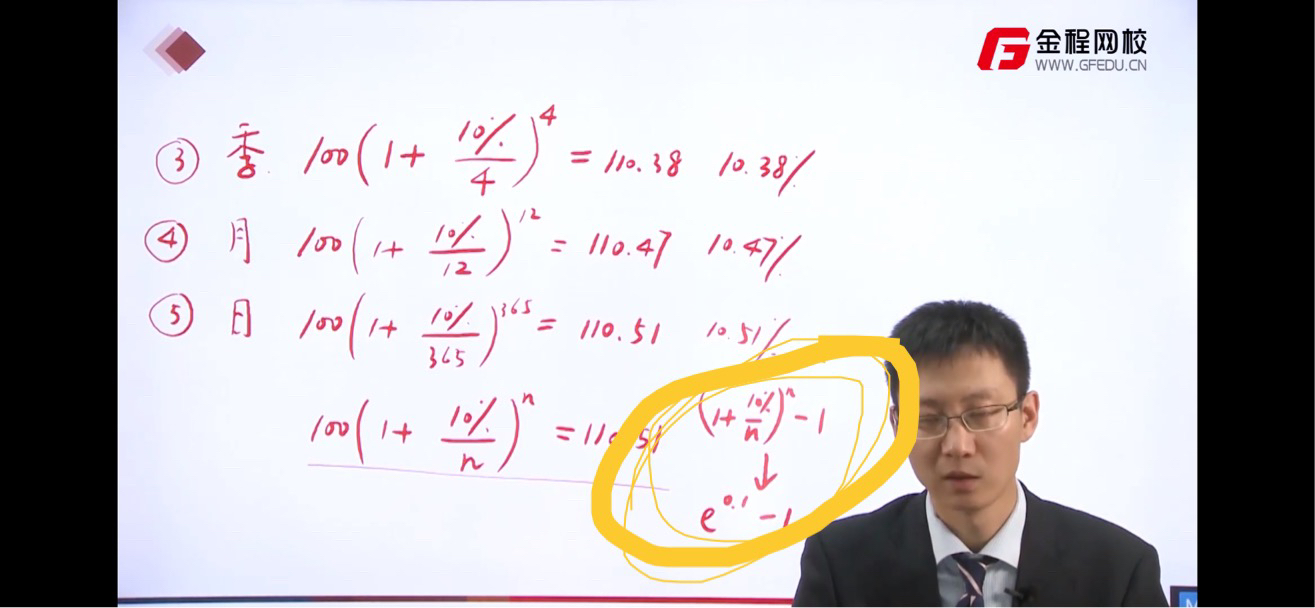 金程网校
WWW.GFEDU.CN
③ 季 100(1+10%/4)^4 = 110.38 10.38%
④ 月 100(1+10%/12)^12 = 110.47 10.47%
⑤ 日 100(1+10%/365)^365 = 110.51 10.51%
100(1+10%/n)^n = 110.51 (1+10%/n)^n - 1
↓
e^0.1 - 1